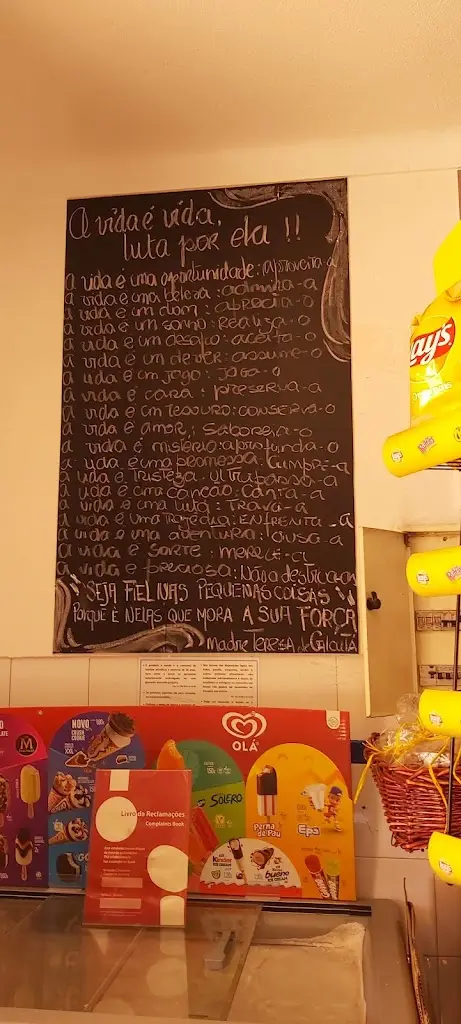 A vida é vida,
luta por ela !!
a vida é uma oportunidade: aproveita-a
a vida é uma beleza: admira-a
a vida é um dom: aprecia-o
a vida é um sonho: realiza-o
a vida é um desafio: aceita-o
a vida é um dever: assume-o
a vida é um jogo: joga-o
a vida é cara: preserva-a
a vida é um tesouro: conserva-o
a vida é amor: saboreia-o
a vida é mistério: aprofunda-o
a vida é uma promessa: cumpre-a
a vida é tristeza: ultrapassa-a
a vida é uma canção: canta-a
a vida é uma luta: trava-a
a vida é uma tragédia: enfrenta-a
a vida é uma aventura: ousa-a
a vida é sorte: merece-a
a vida é preciosa: Não a destruas
SEJA FIEL NAS PEQUENAS COISAS
PORQUE É NELAS QUE MORA A SUA FORÇA
Madre TERESA de CALCUTÁ
Lay's
OLÁ
NOVO
M
SOLERO
Perna de Pau
Epá
Kinder
bueno
Livro de Reclamações
Complaints Book